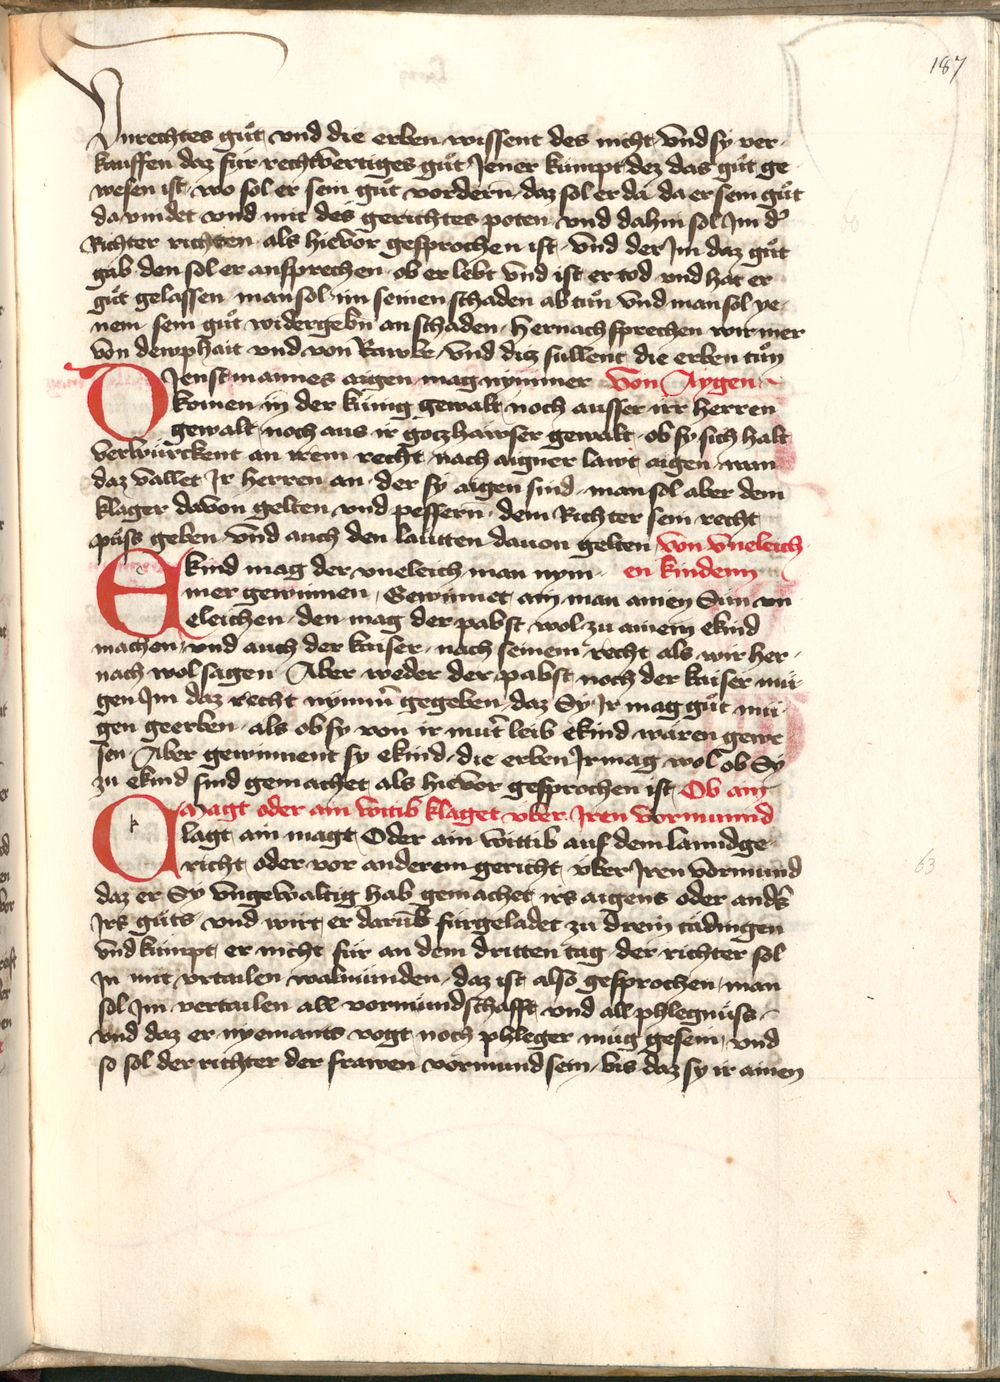 187
Unrechtes gůt vnd die erben wissent des nicht vnd sy ver-
kauffen daz für rechtvertiges gůt Jener kümpt dez das gůt ge
wesen ist wo sol er sein gůt vordern daz sol er da da er sein gůt
da vindet vnd mit des gerichtes poten vnd dahin sol Im d'
Richter richten als hievor gesprochen ist vnd der Im daz gůt
gab den sol er ansprechen ob er lebt vnd ist er tod vnd hat er
gůt gelassen man sol im seinen schaden ab tůn vnd man sol ye-
nem sein gůt widergebn an schaden hernach sprechen wir mer
von dewphait vnd von Rawbe vnd diz sullent die erben tůn
Dienstmannes aigen mag nymmer Von Aygen
komen in der künig gewalt noch ausser irr herren
gewalt noch aus ir gotzhawser gewalt ob sy sich halt
verwürckent an irem recht nach aigner lawt aigen wan
daz vallet Ir herren an der sy aigen sind man sol aber dem
klager davon gelten vnd pessern dem Richter sein recht
půss geben vnd auch den lautten dauon gelten von vneleich
Ekind mag der vneleich man nym- en kindenn
mer gewinnen Gewinnet ain man ainen Sun vn
eleichen den mag der pabst wol zu ainem ekind
machen vnd auch der kaiser nach seinem recht als wir her-
nach wol sagen Aber weder der pabst noch der kaiser mü-
gen Im daz recht nymm' gegeben daz Sy Ir mag gůt mü-
gen geerben als ob sy von ir mut' leib ekind wären gewe
sen Aber gewinnent sy ekind die erben Ir mag wol ob Sy
zu ekind sind gemachet als hievor gesprochen ist Ob ain
Magt oder ain wittib klaget vber Iren vormund
k
Clagt ain magt Oder ain wittib auf dem lanndge-
richt oder vor anderem gericht vber Iren vormund
daz er Sy vngewaltig hab gemachet irs aigens oder and's
Irs gůts vnd wirt er darūb fürgeladet zu drein tädingen
vnd kümpt er nicht für an dem dritten tag der richter sol
In mit vrtailen walmunden daz ist also gesprochen man
sol Im vertailen all vormundschafft vnd all phlegnüss
vnd daz er nyemants vogt noch phleger müg gesein vnd
so sol der richter der frawen vormund sein bis daz sy ir ainen
63